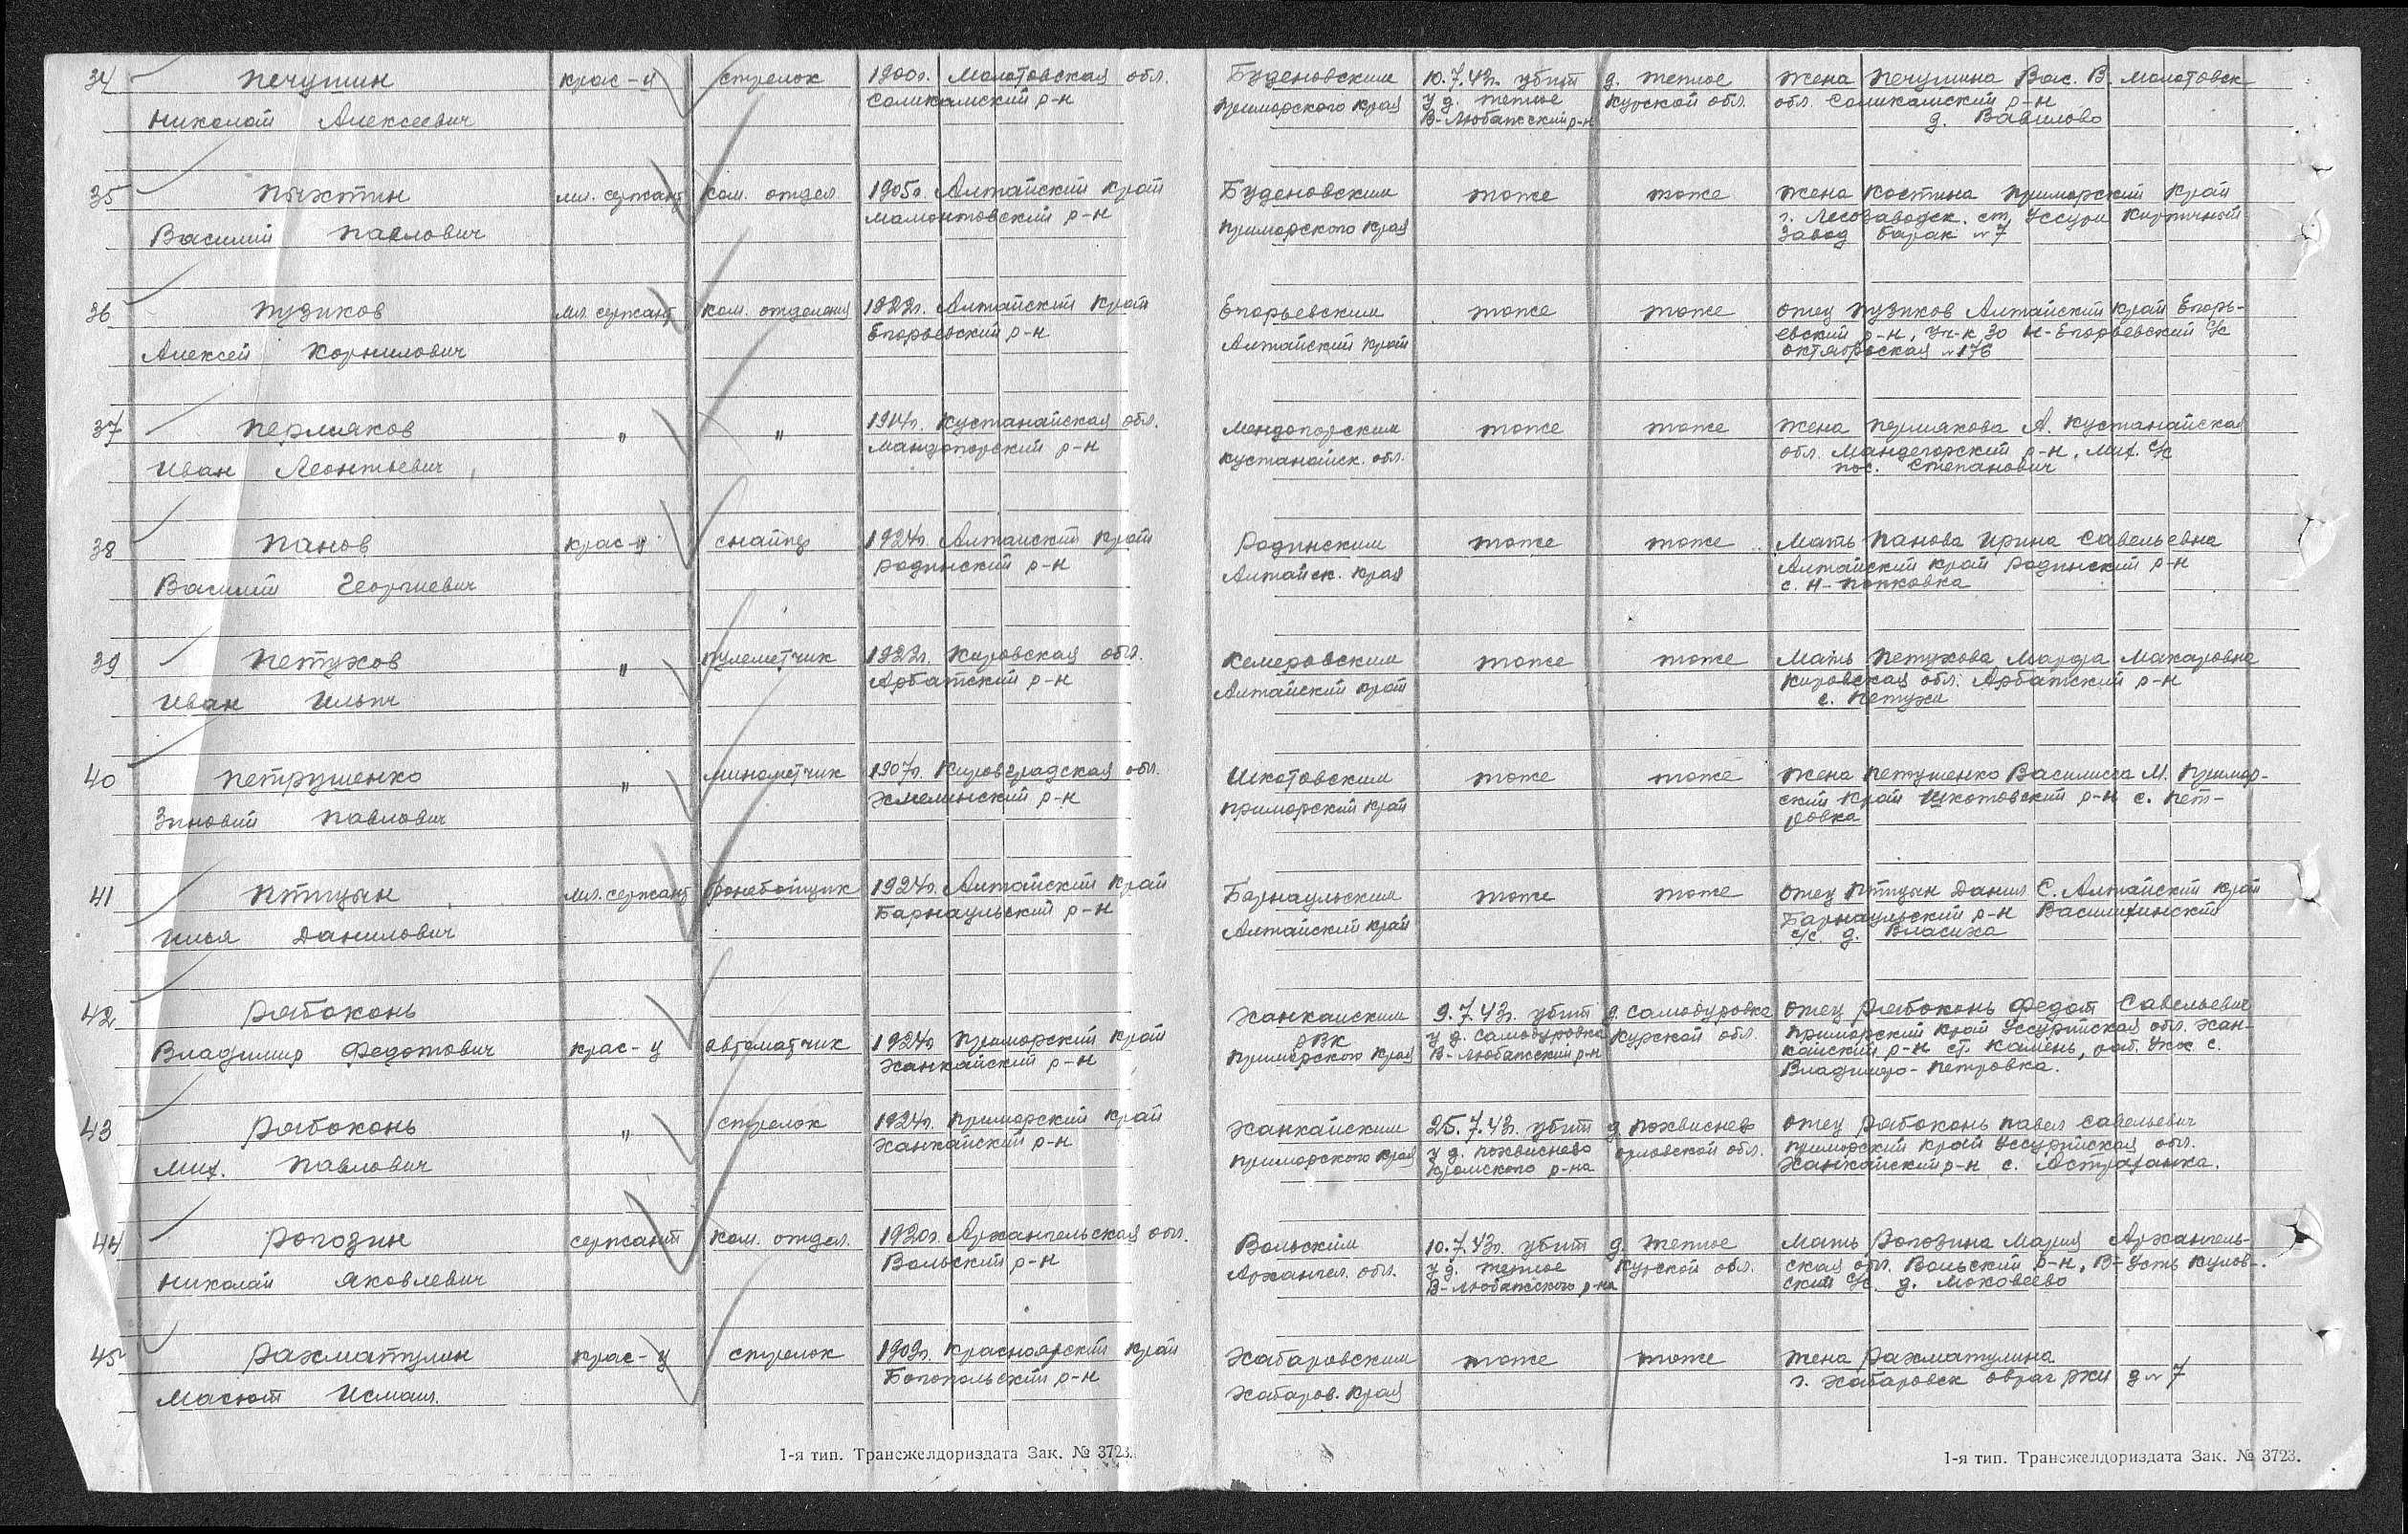 34 Печушин крас-ц стрелок 1900г. Молотовская обл. Буденовским 10.7.43г. убит д. Теплое Жена Печушина Вас. В. Молотовск
Соликамский р-н Приморского края у д. Теплое Курской обл. обл. Соликамский р-н
Николай Алексеевич В-Любажский р-н д. Вавилово
35 Пахтин мл. сержант ком. отдел 1905г. Алтайский край Буденовским тоже тоже Жена Костина Приморский край
Мамонтовский р-н г. Лесозаводск. ст. Уссури Кирпичный
Василий Павлович Приморского края завод барак №7
36 Пузиков мл. сержант ком. отделения 1922г. Алтайский край Егорьевским тоже тоже отец Пузиков Алтайский край Егорь-
Егорьевский р-н евский р-н, Уч-к 30 Н-Егорьевский с/с
Алексей Корнилович Алтайский край Октябрьская №176
37 Пермяков " " 1914г. Кустанайская обл. Мендогорским тоже тоже Жена Пермякова А. Кустанайская
Мандогорский р-н обл. Мандегорский р-н, Мих. с/с
Иван Леонтьевич Кустанайск. обл. пос. Степанович
38 Панов крас-ц снайпер 1924г. Алтайский край Родинским тоже тоже Мать Панова Ирина Савельевна
Родинский р-н Алтайский край Родинский р-н
Василий Георгиевич Алтайск. края с. Н-Покковка
39 Петухов " пулеметчик 1922г. Кировская обл. Кемеровским тоже тоже Мать Петухова Марфа Макаровна
Арбатский р-н Кировская обл. Арбатский р-н
Иван Ильич Алтайский край с. Петухи
40 Петрушенко " минометчик 1907г. Кировградская обл. Шкотовским тоже тоже Жена Петушенко Василиса М. Примор-
Хмелинский р-н ский край Шкотовский р-н с. Пет-
Зиновий Павлович Приморский край ровка
41 Птицын мл. сержант бронебойщик 1924г. Алтайский край Барнаульским тоже тоже отец Птицын Данил С. Алтайский край
Барнаульский р-н Барнаульский р-н Василихинский
Илья Данилович Алтайский край с/с. д. Власиха
42 Рябоконь Ханкайским 9.7.43г. убит д. Самодуровка отец Рябоконь Федот Савельевич
Владимир Федотович крас-ц автоматчик 1924г. Приморский край РВК у д. Самодуровка Курской обл. Приморский край Уссурийская обл. Хан-
Ханкайский р-н Приморского края В-Любажский р-н кайский р-н ст. Камень, с.
Владимиро-Петровка.
43 Рябоконь " стрелок 1924г. Приморский край Ханкайским 25.7.43г. убит д. Похвиснево отец Рябоконь Павел Савельевич
Ханкайский р-н Приморского края у д. Похвиснево Орловской обл. Приморский край Уссурийская обл.
Мих. Павлович Кромского р-на Ханкайский р-н с. Астраханка.
44 Рогозин сержант ком. отдел. 1920г. Архангельская обл. Вольским 10.7.43г. убит д. Теплое Мать Рогозина Мария Архангель-
Вольский р-н Архангел. обл. у д. Теплое Курской обл. ская обл. Вольский р-н, В-Усть Кулов-
Николай Яковлевич В-Любажского р-на ский с/с. д. Моковеево
45 Рахматулин крас-ц стрелок 1903г. Красноярский край Хабаровским тоже тоже Жена Рахматулина
Богопольский р-н г. Хабаровск овраг д №7
Масют Исмаил. Хабаров. края
1-я тип. Трансжелдориздата Зак. № 3723. 1-я тип. Трансжелдориздата Зак. № 3723.